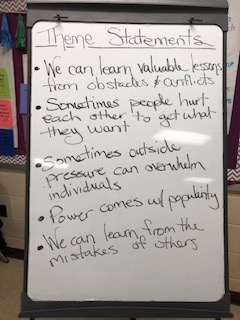 Theme Statements
• We can learn valuable lessons
from obstacles & conflicts
• Sometimes people hurt
each other to get what
they want
• Sometimes outside
pressure can overwhelm
individuals
• Power comes w/ popularity
• We can learn from the
mistakes of others